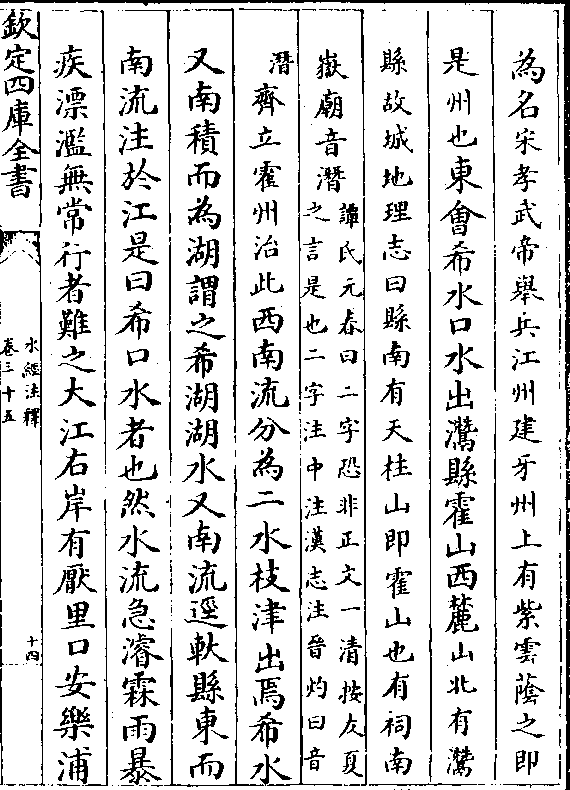 為名宋孝武帝舉兵江州建牙州上有紫雲蔭之即
是州也東會希水口水出灊縣霍山西麓山北有灊
縣故城地理志曰縣南有天柱山即霍山也有祠南
嶽廟音潛
譚氏元春曰二字恐非正文一清按友夏
之言是也二字注中注漢志注晉灼曰音
潛
齊立霍州治此西南流分為二水枝津出焉希水
又南積而為湖謂之希湖湖水又南流逕軑縣東而
南流注於江是曰希口水者也然水流急濬霖雨暴
疾漂濫無常行者難之大江右岸有厭里口安樂浦
欽定四庫全書
水經注釋
卷三十五
十四